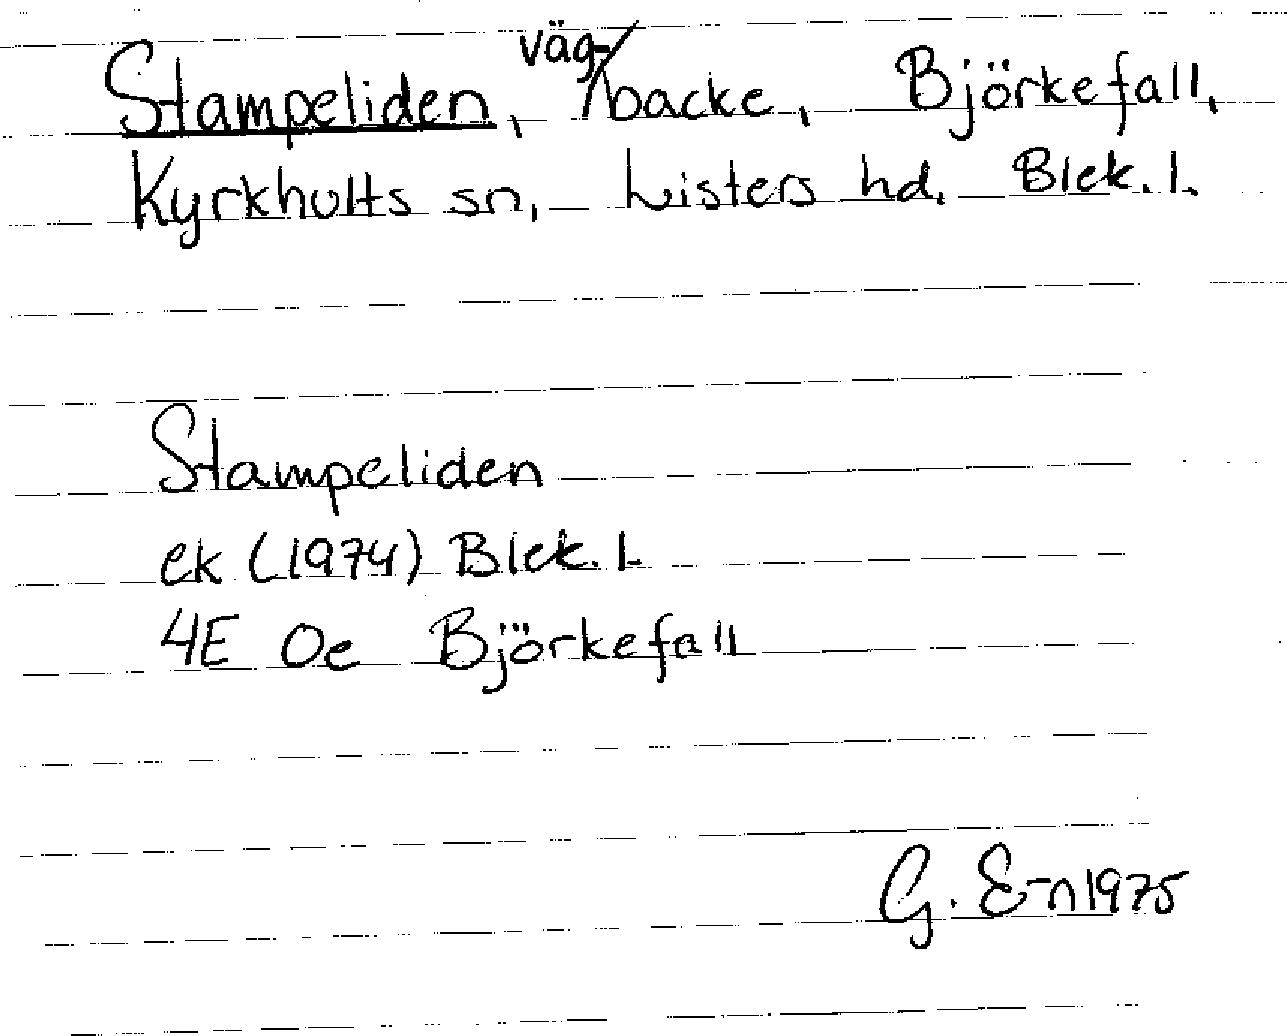 Stampeliden, väg-/backe, Björkefall,
Kyrkhults sn, Listers hd. Blek. l.
Stampeliden
ek (1974) Blek. l.
4E 0e Björkefall
G. E-n 1975